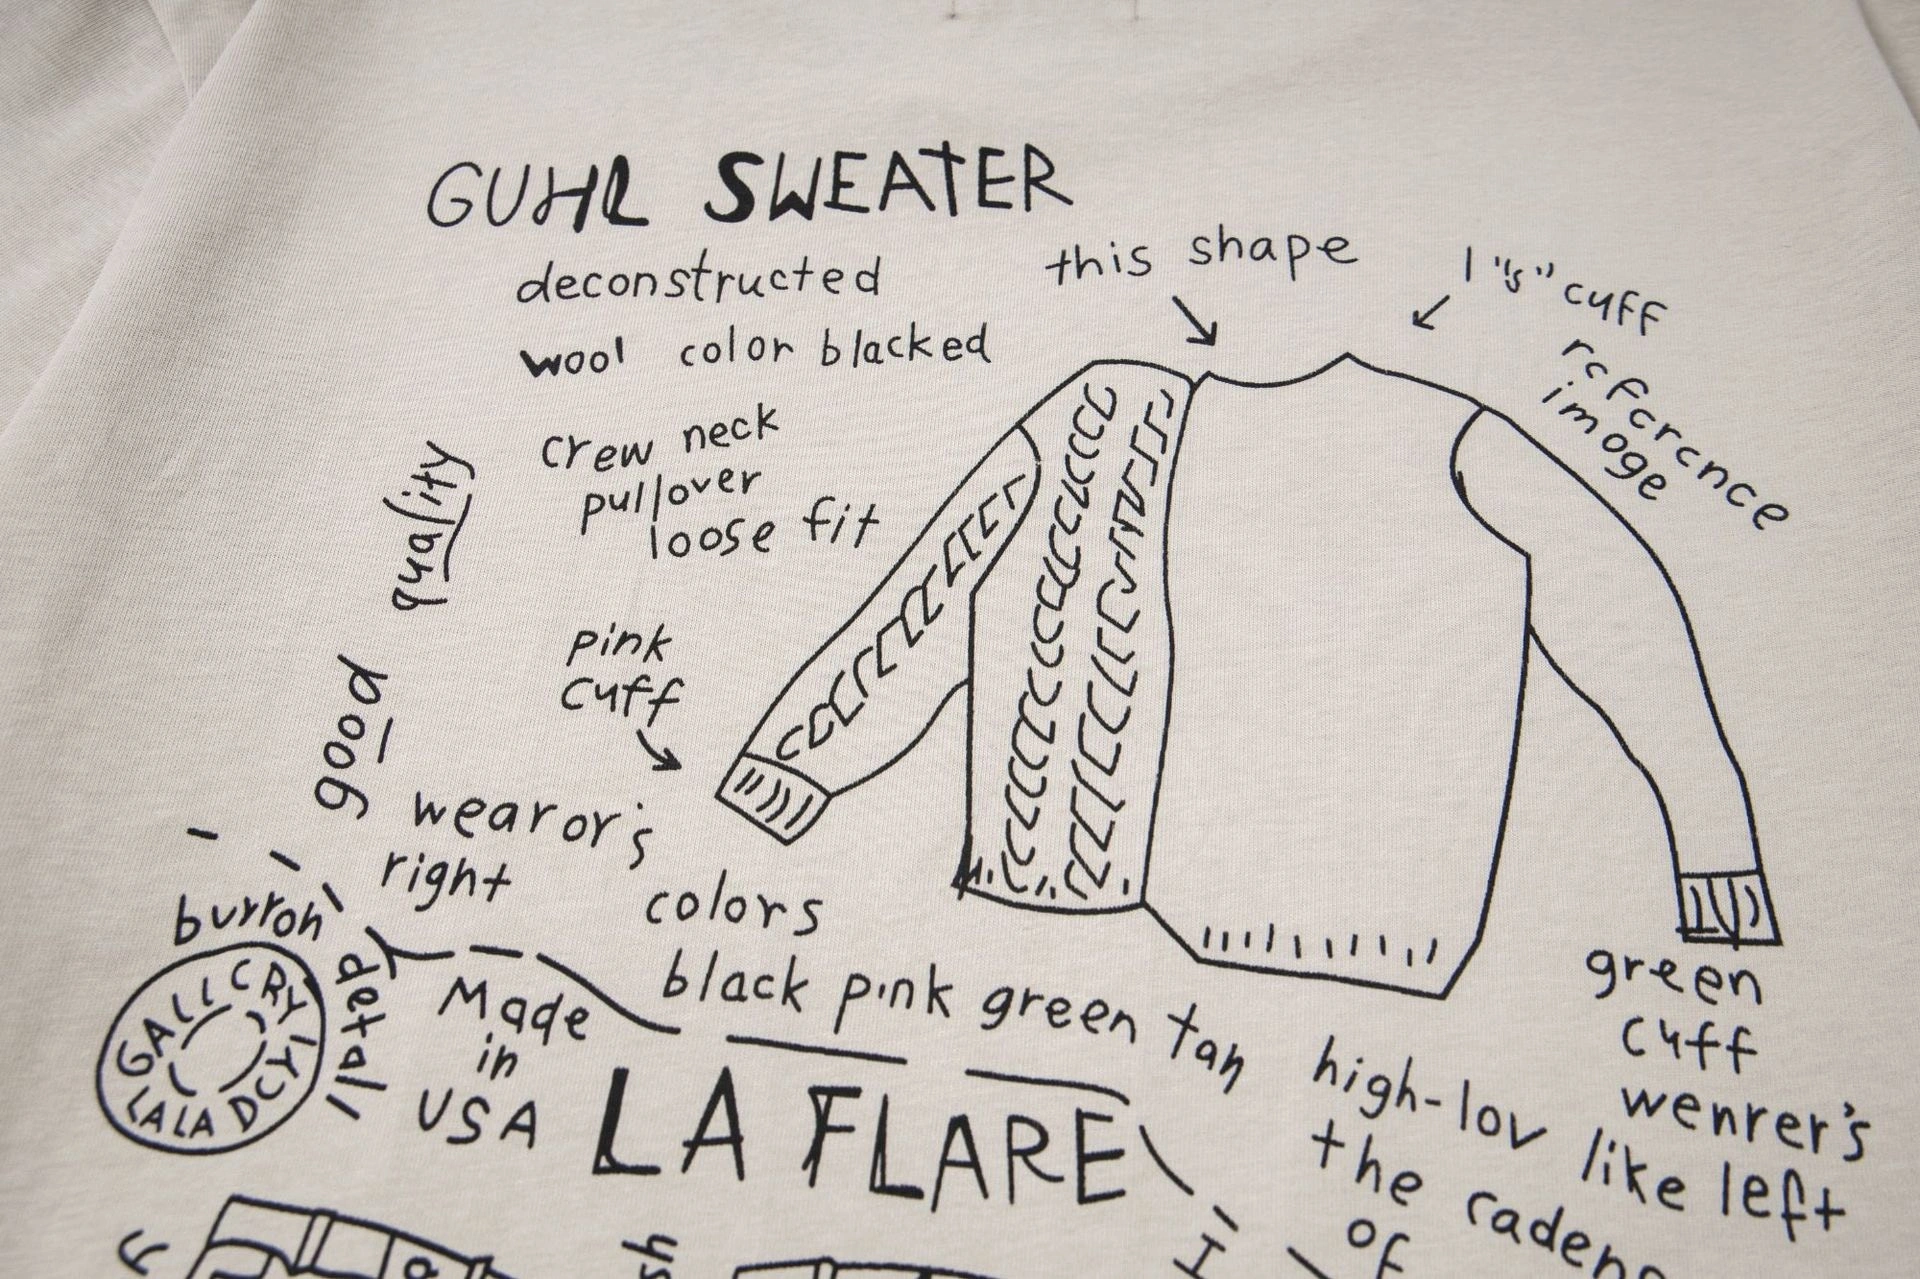 GUHL SWEATER
deconstructed
wool color blacked
this shape
1 "s" cuff
refcrcnce
imoge
crew neck
pullover
loose fit
good quality
pink
cuff
wearor's
right
colors
black pink green tan
burron
detail
GALLCRY
LALA DCYI
Made
in
USA
LA FLARE
green
cuff
wenrer's
left
high-lov like
the
of